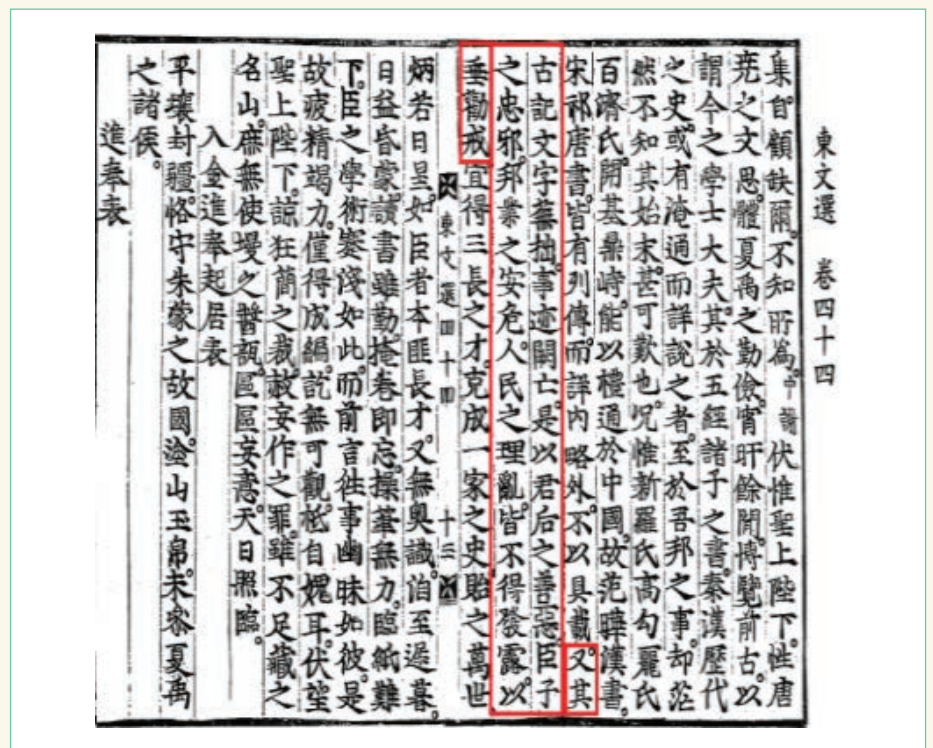 東文選 卷四十四
集自顧缺爾。不知所爲。中謝伏惟聖上陛下。性唐
堯之文思。體夏禹之勤儉。宵旰餘閒。博覽前古。以
謂今之學士大夫。其於五經諸子之書。秦漢歷代
之史。或有淹通而詳說之者。至於吾邦之事。却茫
然不知其始末。甚可歎也。况惟新羅氏高句麗氏
百濟氏。開基鼎峙。能以禮通於中國。故范曄漢書。
宋祁唐書。皆有列傳。而詳內略外。不以具載。又其
古記文字蕪拙。事迹闕亡。是以君后之善惡。臣子
之忠邪。邦業之安危。人民之理亂。皆不得發露。以
垂勸戒。宜得三長之才。克成一家之史。貽之萬世。
東文選四十四 十三
炳若日星。如臣者本匪長才。又無奧識。洎至遲暮。
日益昏蒙。讀書雖勤。掩卷即忘。操筆無力。臨紙難
下。臣之學術蹇淺如此。而前言往事幽昧如彼。是
故疲精竭力。僅得成編。訖無可觀。秪自媿耳。伏望
聖上陛下。諒狂簡之裁。赦妄作之罪。雖不足藏之
名山。庶無使墁之醬瓿。區區妄意。天日照臨。
入金進奉起居表
平壤封疆。恪守朱蒙之故國。塗山玉帛。未參夏禹
之諸侯。
進奉表